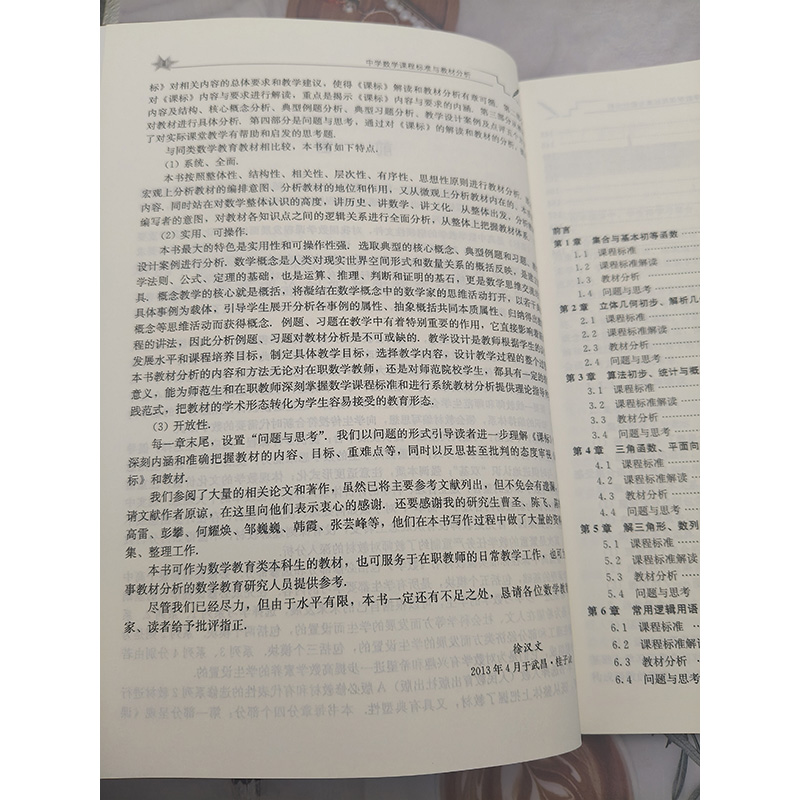 中学数学课程标准与教材分析
标》对相关内容的总体要求和教学建议，使得《课标》解读和教材分析有章可循. 第二
对《课标》内容与要求进行解读，重点是揭示《课标》内容与要求的内涵. 第三部分
内容及结构、核心概念分析、典型例题分析、典型习题分析、教学设计案例及点评五个
对教材进行具体分析. 第四部分是问题与思考，通过对《课标》的解读和教材的分析，
了对实际课堂教学有帮助和启发的思考题.
与同类数学教育教材相比较，本书有如下特点.
（1）系统、全面.
本书按照整体性、结构性、相关性、层次性、有序性、思想性原则进行教材分析.
宏观上分析教材的编排意图、分析教材的地位和作用，又从微观上分析教材内在的
内容. 同时站在对数学整体认识的高度，讲历史、讲数学、讲文化. 从整体出发，分析
编写者的意图，对教材各知识点之间的逻辑关系进行全面分析，从整体上把握教材体系.
（2）实用、可操作.
本书最大的特色是实用性和可操作性强. 选取典型的核心概念、典型例题和习题、
设计案例进行分析. 数学概念是人类对现实世界空间形式和数量关系的概括反映，是
学法则、公式、定理的基础，也是运算、推理、判断和证明的基石，更是数学思维交流
具. 概念教学的核心就是概括，将凝结在数学概念中的数学家的思维活动打开，以若干
具体事例为载体，引导学生展开分析各事例的属性、抽象概括共同本质属性、归纳得出
概念等思维活动而获得概念. 例题、习题在教学中有着特别重要的作用，它直接影响着
程的讲法，因此分析例题、习题对教材分析是不可或缺的. 教学设计是教师根据学生的
发展水平和课程培养目标，制定具体教学目标，选择教学内容，设计教学过程的整个
本书教材分析的内容和方法无论对在职数学教师，还是对师范院校学生，都具有一定的
意义，能为师范生和在职教师深刻掌握数学课程标准和进行系统教材分析提供理论指导
践范式，把教材的学术形态转化为学生容易接受的教育形态.
（3）开放性.
每一章末尾，设置“问题与思考”. 我们以问题的形式引导读者进一步理解《课标》
深刻内涵和准确把握教材的内容、目标、重难点等，同时以反思甚至批判的态度审视
标》和教材.
我们参阅了大量的相关论文和著作，虽然已将主要参考文献列出，但不免会有遗漏
请文献作者原谅，在这里向他们表示衷心的感谢. 还要感谢我的研究生曹圣、陈飞、
高雷、彭攀、何耀焕、邹巍巍、韩霞、张芸峰等，他们在本书写作过程中做了大量的资料
集、整理工作.
本书可作为数学教育类本科生的教材，也可服务于在职教师的日常教学工作，也可
事教材分析的数学教育研究人员提供参考.
尽管我们已经尽力，但由于水平有限，本书一定还有不足之处，恳请各位数学教育
家、读者给予批评指正.
徐汉文
2013年4月于武昌·桂子山
前言
第1章 集合与基本初等函数
1.1 课程标准
1.2 课程标准解读
1.3 教材分析
1.4 问题与思考
第2章 立体几何初步、解析几
2.1 课程标准
2.2 课程标准解读
2.3 教材分析
2.4 问题与思考
第3章 算法初步、统计与概
3.1 课程标准
3.2 课程标准解读
3.3 教材分析
3.4 问题与思考
第4章 三角函数、平面向
4.1 课程标准
4.2 课程标准解读
4.3 教材分析
4.4 问题与思考
第5章 解三角形、数列
5.1 课程标准
5.2 课程标准解读
5.3 教材分析
5.4 问题与思考
第6章 常用逻辑用语
6.1 课程标准
6.2 课程标准解读
6.3 教材分析
6.4 问题与思考